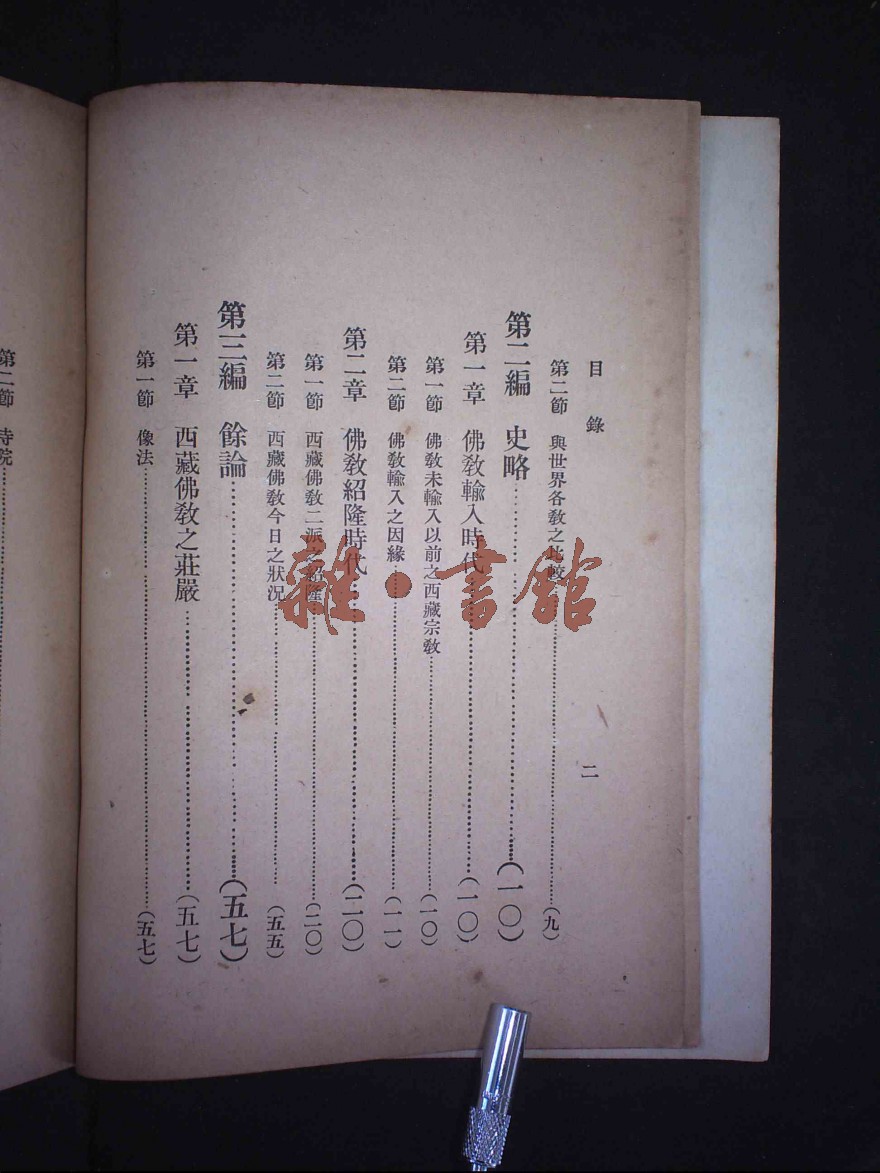 目錄
二
第二節 與世界各教之比較……(九)
第二編 史略……(一〇)
第一章 佛教輸入時代……(一〇)
第一節 佛教未輸入以前之西藏宗教……(一〇)
第二節 佛教輸入之因緣……(一一)
第二章 佛教紹隆時代……(二〇)
第一節 西藏佛教二派之紹隆……(二〇)
第二節 西藏佛教今日之狀況……(五五)
第三編 餘論……(五七)
第一章 西藏佛教之莊嚴……(五七)
第一節 像法……(五七)
第二節 寺院
雜·書館